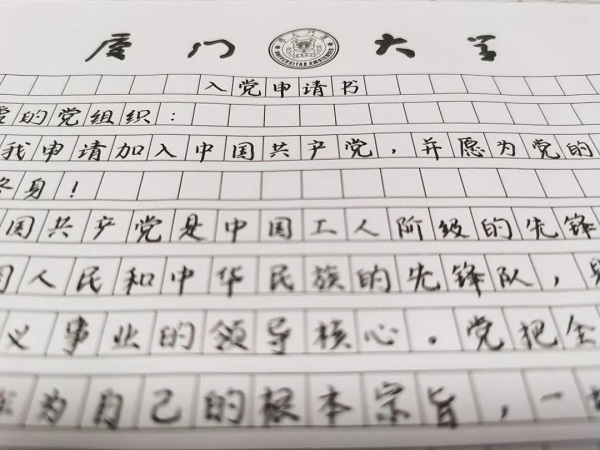 厦门大学
入党申请书
的党组织：
我申请加入中国共产党，并愿为党的
终身！
国共产党是中国工人阶级的先锋
人民和中华民族的先锋队，
义事业的领导核心。党把全
为自己的根本宗旨，一